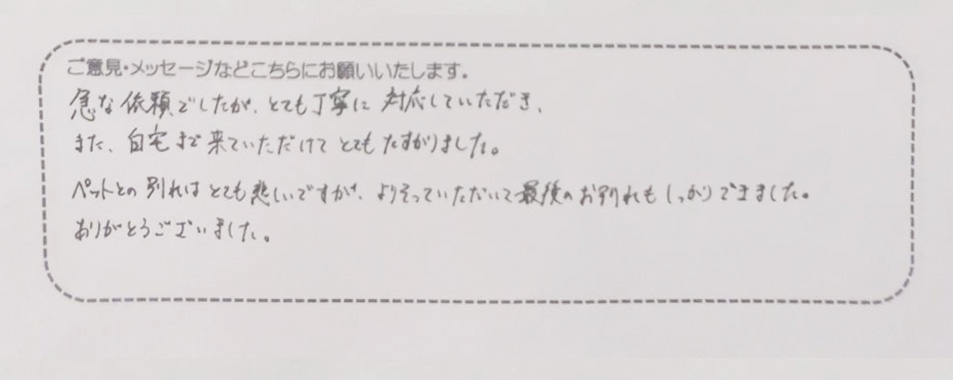 ご意見・メッセージなどこちらにお願いいたします。
急な依頼でしたが、とても丁寧に対応していただき、
また、自宅まで来ていただけてとてもたすかりました。
ペットとの別れはとても悲しいですが、よりそっていただいて最後のお別れもしっかりできました。
ありがとうございました。